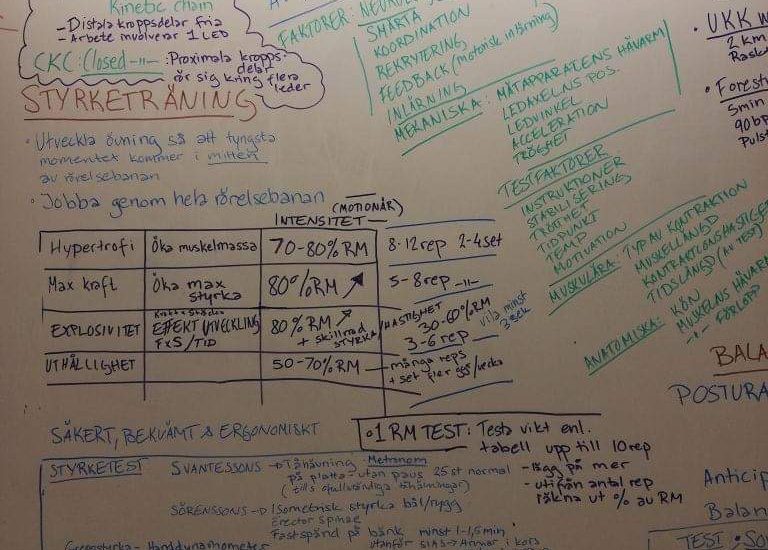 Kinetic chain
- Distala kroppsdelar fria
- Arbete involverar 1 LED
CKC: Closed -11- : Proximala kropps-
delar
rör sig kring flera
leder
STYRKETRÄNING
• Utveckla övning så att tyngsta
momentet kommer i mitten
av rörelsebanan
• Jobba genom hela rörelsebanan
(MOTIONÄR)
INTENSITET
Hypertrofi Öka muskelmassa 70-80% RM 8-12 rep 2-4 set
Max kraft Öka max
styrka 80% RM ↗ 5-8 rep -11-
EXPLOSIVITET EFFEKT UTVECKLING
FxS/TID 80% RM ↗
+ skillnad
STYRKA/HASTIGHET
30-60% RM
3-6 rep
vila minst
UTHÅLLIGHET 50-70% RM många reps
+ set fler ggr/vecka
FAKTORER:
SMÄRTA
KOORDINATION
REKRYTERING
FEEDBACK (motorisk inlärning)
INLÄRNING
MEKANISKA: MÄTAPPARATENS HÄVARM
LEDAXELNS POS.
LEDVINKEL
ACCELERATION
TRÖGHET
TESTFAKTORER
INSTRUKTIONER
STABILISERING
TRÖTTHET
TIDPUNKT
TEMP
MOTIVATION
MUSKULÄRA: TYP AV KONTRAKTION
MUSKELLÄNGD
KONTRAKTIONSHASTIGHET
TIDSLÄNGD (AV TEST)
ANATOMISKA: KÖN
MUSKELNS HÄVARM
-11- FÖRLOPP
• UKK
2 km
Rask
• Forest
5 min
90 bp
Puls
BALA
POSTURA
Anticip
Balan
TEST:
SÄKERT, BEKVÄMT & ERGONOMISKT
• 1 RM TEST: Testa vikt enl.
tabell upp till 10 rep
- lägg på mer
- utifrån antal rep
räkna ut % av RM
STYRKETEST SVANTESSONS → Tåhävning Metronom
på platta utan paus 25 st normal
(tills ofullständiga tåhävningar)
SÖRENSSONS → Isometrisk styrka bål/rygg
Erector Spinae
Fastspänd på bänk minst 1-1,5 min
utanför SIAS → Armar i kors
Greppstyrka - Handdynamometer